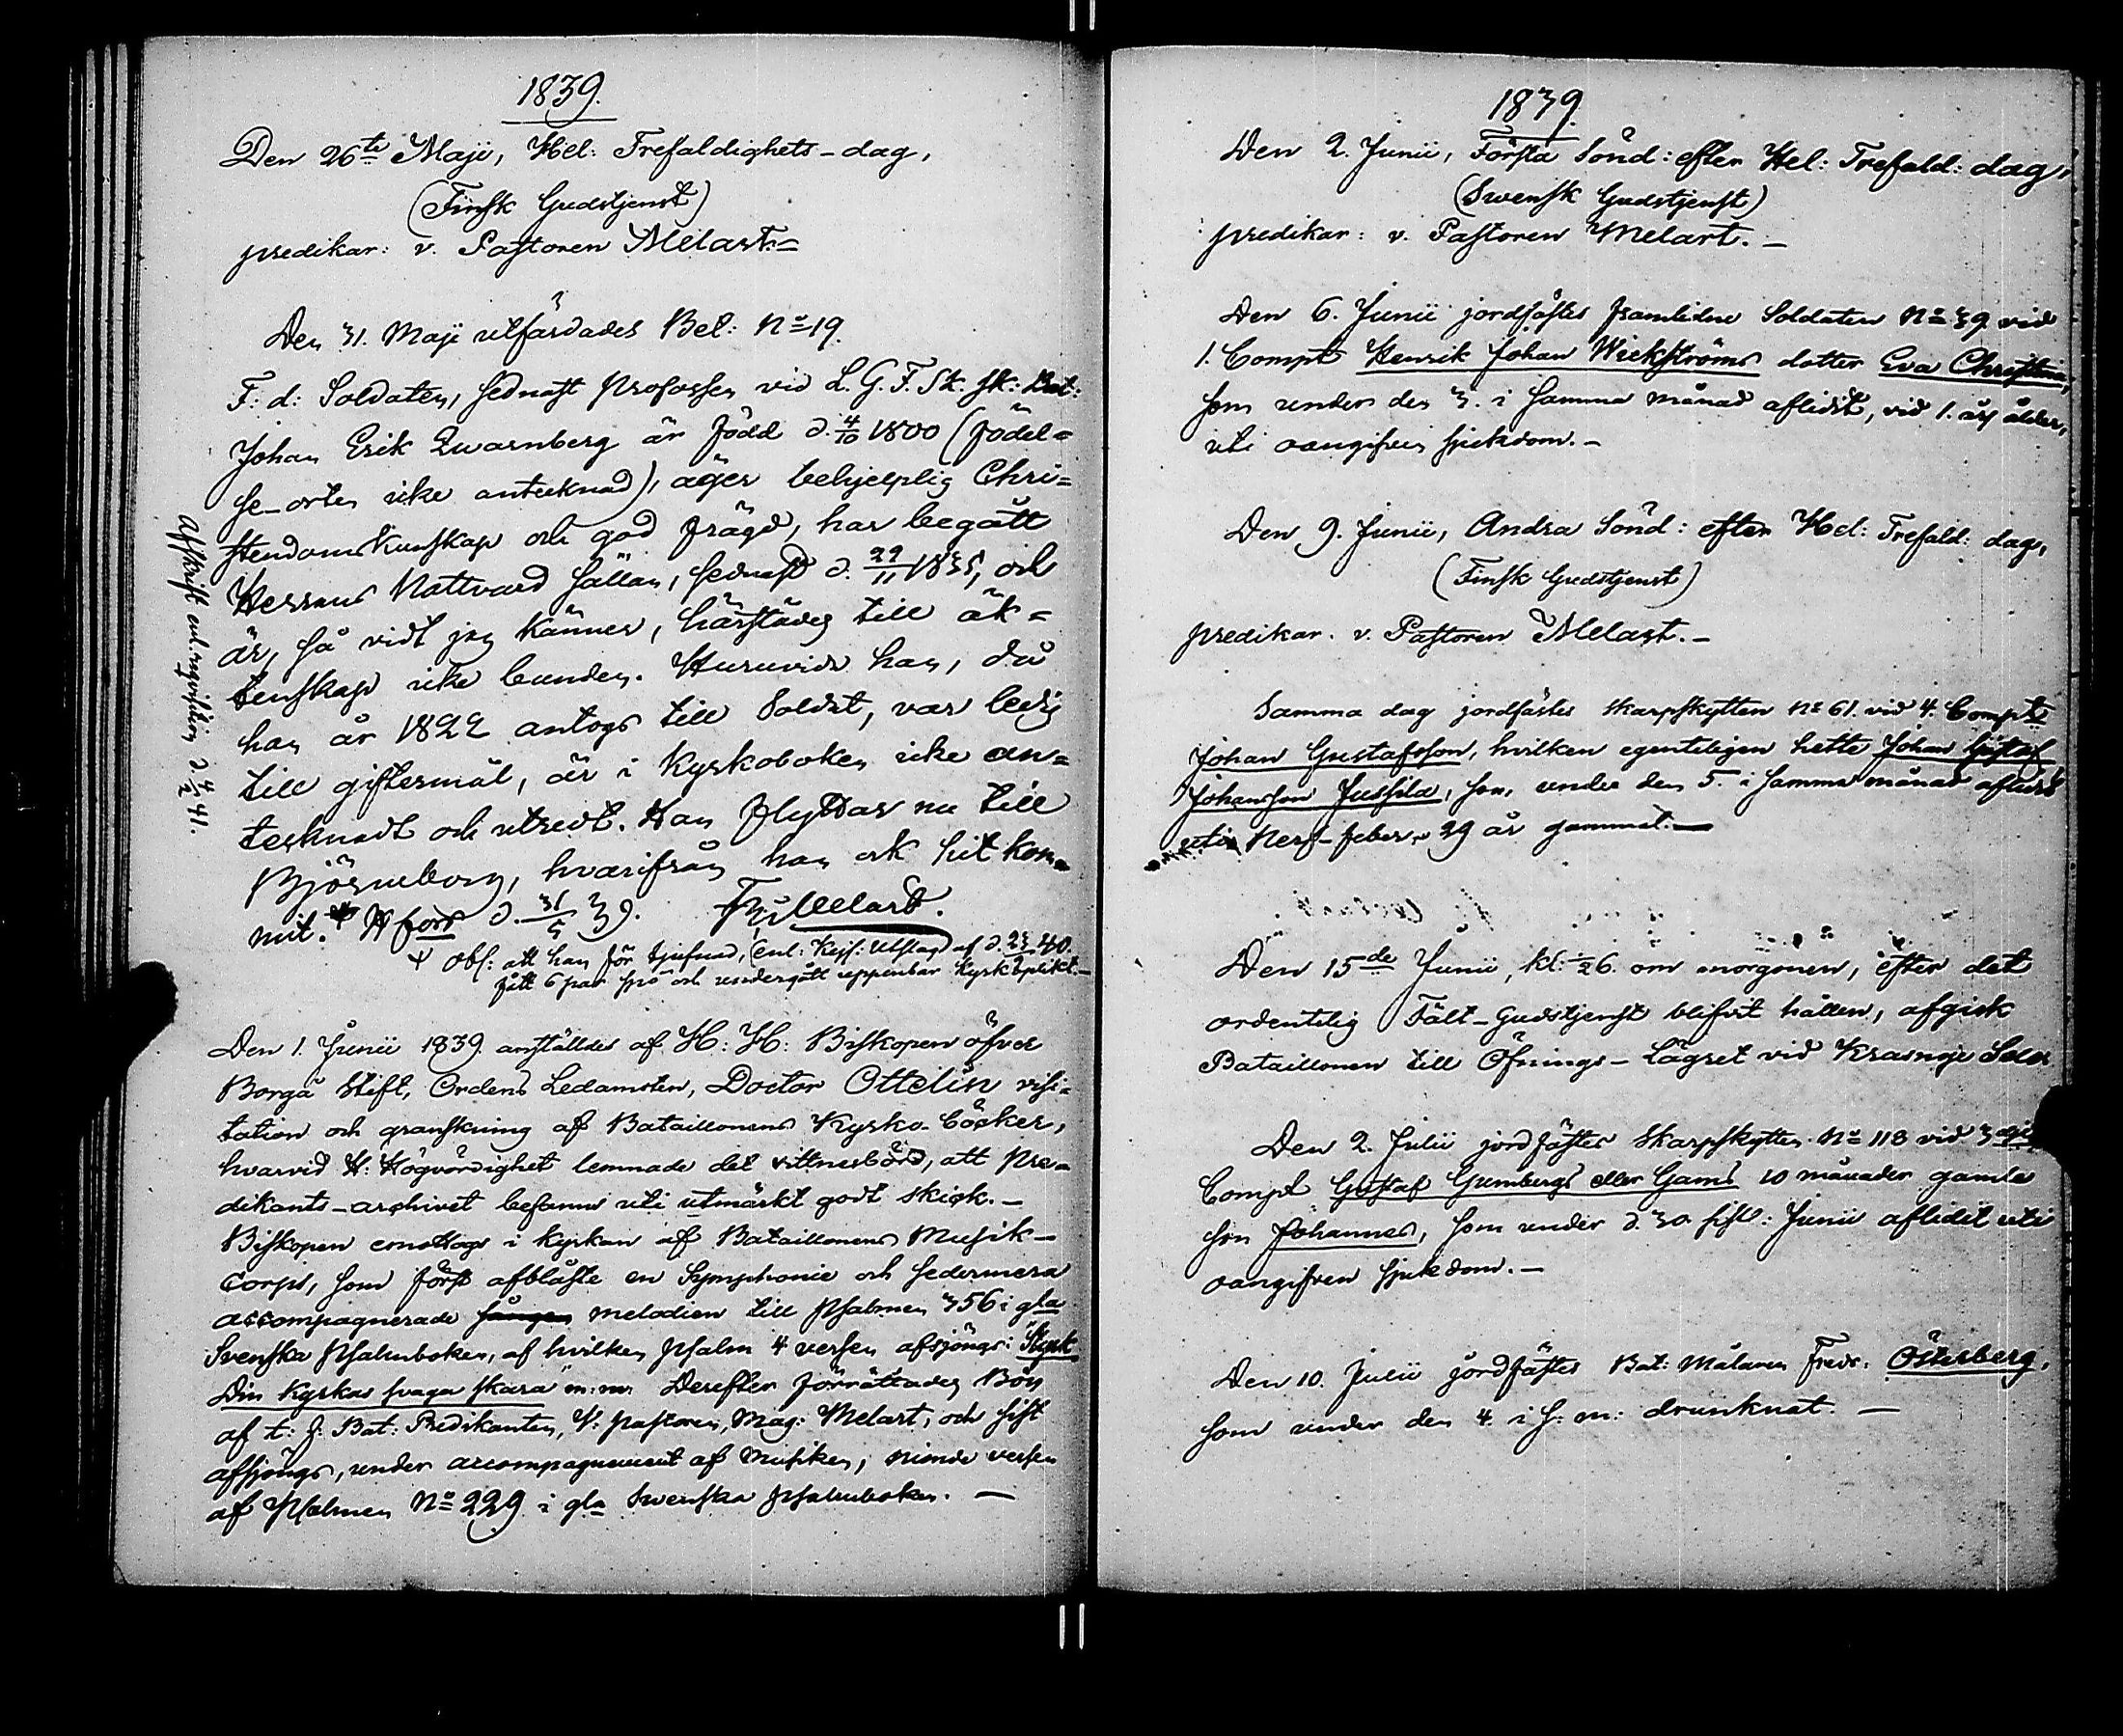 1839.
Den 26te Maji, Hel: Trefaldighets-dag,
(Finsk Gudstjenst)
predikar: v. Pastoren Melart.-
Den 31. Maji utfärdades Bet: No 19.
F. d: Soldaten, sednast profossen vid L. G. F. Sk. sk: Bat:
Johan Erik Qwarnberg är född d. 4/10 1800 (födel=
se-orten icke antecknad), äger behjelplig Chri=
stendomskunskap och god frägd, har begått
Herrans Nattvard sällan, sednast d. 29/11 1835, och
är, så vidt jag känner, härstädes till äk=
tenskap icke bunden. Huruvida han, då
han år 1822 antogs till Soldat, var ledig
till giftermål, är i Kyrkoboken icke an=
tecknadt och utredt. Han flyttar nu till
Björneborg, hvarifrån han ock hit kom-
mit. + H fors d. 31/5 39. Melart.
+ Obs: att han för tjufnad, (enl: Kejs: Utslag af d. 40.
fått 6 par spö och undergått uppenbar Kyrkoplikt.-
Afskrift enl. d. 4/2 41.
Den 1. Junii 1839 anställdes af H: H: Biskopen öfver
Borgå Stift, Ordens Ledamoten, Doctor Ottelin visi=
tation och granskning af Bataillonens Kyrko-böcker,
hvarvid H: Högvördighet lemnade det vittnesbörd, att Pre=
dikants-archivet befanns uti utmärkt godt skick.-
Biskopen emottogs i kyrkan af Bataillonens Musik-
Corps, som först afblåste en Symphonie och sedermera
accompagnerade sången melodien till Psalmen 356 i gla
Svenska Psalmboken, af hvilken psalm 4 versen afsjöngs: Styrk
Din kyrkas svaga skara m:m: Derefter förrättades Bön
af t: f: Bat: Predikanten, V: pastoren, Mag: Melart, och sist
afsjöngs, under accompagnement af Musiken, nionde versen
af Psalmen No 229 i gla Swenska psalmboken. —
1839.
Den 2. Junii, Första Sönd: efter Hel: Trefald: dag,
(Swensk Gudstjenst)
predikar: v. Pastoren Melart.-
Den 6. Junii jordfästes framlidne Soldaten No 39 vid
1. Compt Henrik Johan Wickströms dotter Eva Christina,
som under den 3. i samma månad aflidit, vid 1. års ålder,
uti oangifven sjukdom.-
Den 9. Junii, Andra Sönd: efter Hel: Trefald: dag,
(Finsk Gudstjenst)
predikar. v. Pastoren Melart.-
Samma dag jordfästes skarpskytten No 61. vid 4. Compt
Johan Gustafsson, hvilken egenteligen hette Johan Gustaf
Johansson Jussila, som under den 5. i samma månad aflidit
uti Nerf-feber, 29 år gammal.—
Den 15de Junii, kl: 1/2 6. om morgonen, efter det
ordentelig Fält-Gudstjenst blifvit hållen, afgick
Bataillonen till Öfnings-Lägret vid Krasnoje Selo
Den 2. Julii jordfästes Skarpskytten No 118 vid 3dje
Compt Gustaf Gumbergs eller Gams 10 månader gamla
son Johannes, som under d. 30 sistl: Junii aflidit uti
oangifven sjukdom.-
Den 10. Julii jordfästes Bat: Målaren Fredr: Österberg,
som under den 4. i s: m: drunknat. —